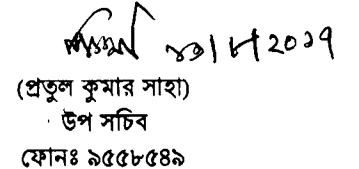 ২০১৭
(প্রতুল কুমার সাহা)
উপ সচিব
ফোনঃ ৯৫৫৮৫৪৯